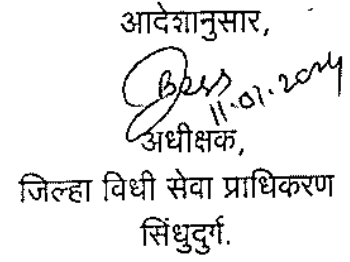 आदेशानुसार,
11.01.2024
अधीक्षक,
जिल्हा विधी सेवा प्राधिकरण
सिंधुदुर्ग.